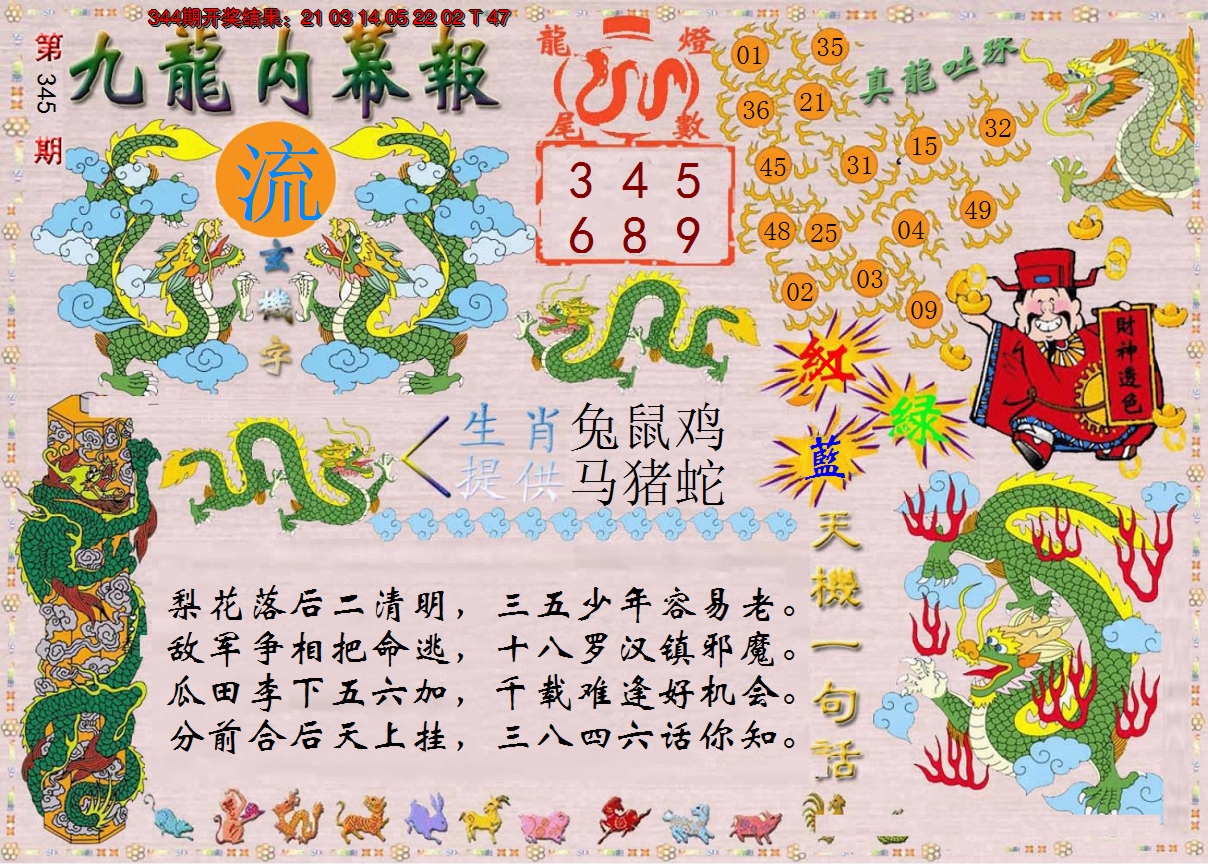 344期开奖结果：21 03 14 05 22 02 T 47
第345期
九龍内幕報
流
玄機字
龍燈
尾數
3 4 5
6 8 9
真龍吐珠
01 35
36 21
15 32
45 31
49
48 25 04
02 03
09
財神透色
紅
綠
藍
生肖 兔鼠鸡
提供 马猪蛇
天機一句話
梨花落后二清明，三五少年容易老。
敌军争相把命逃，十八罗汉镇邪魔。
瓜田李下五六加，千载难逢好机会。
分前合后天上挂，三八四六话你知。